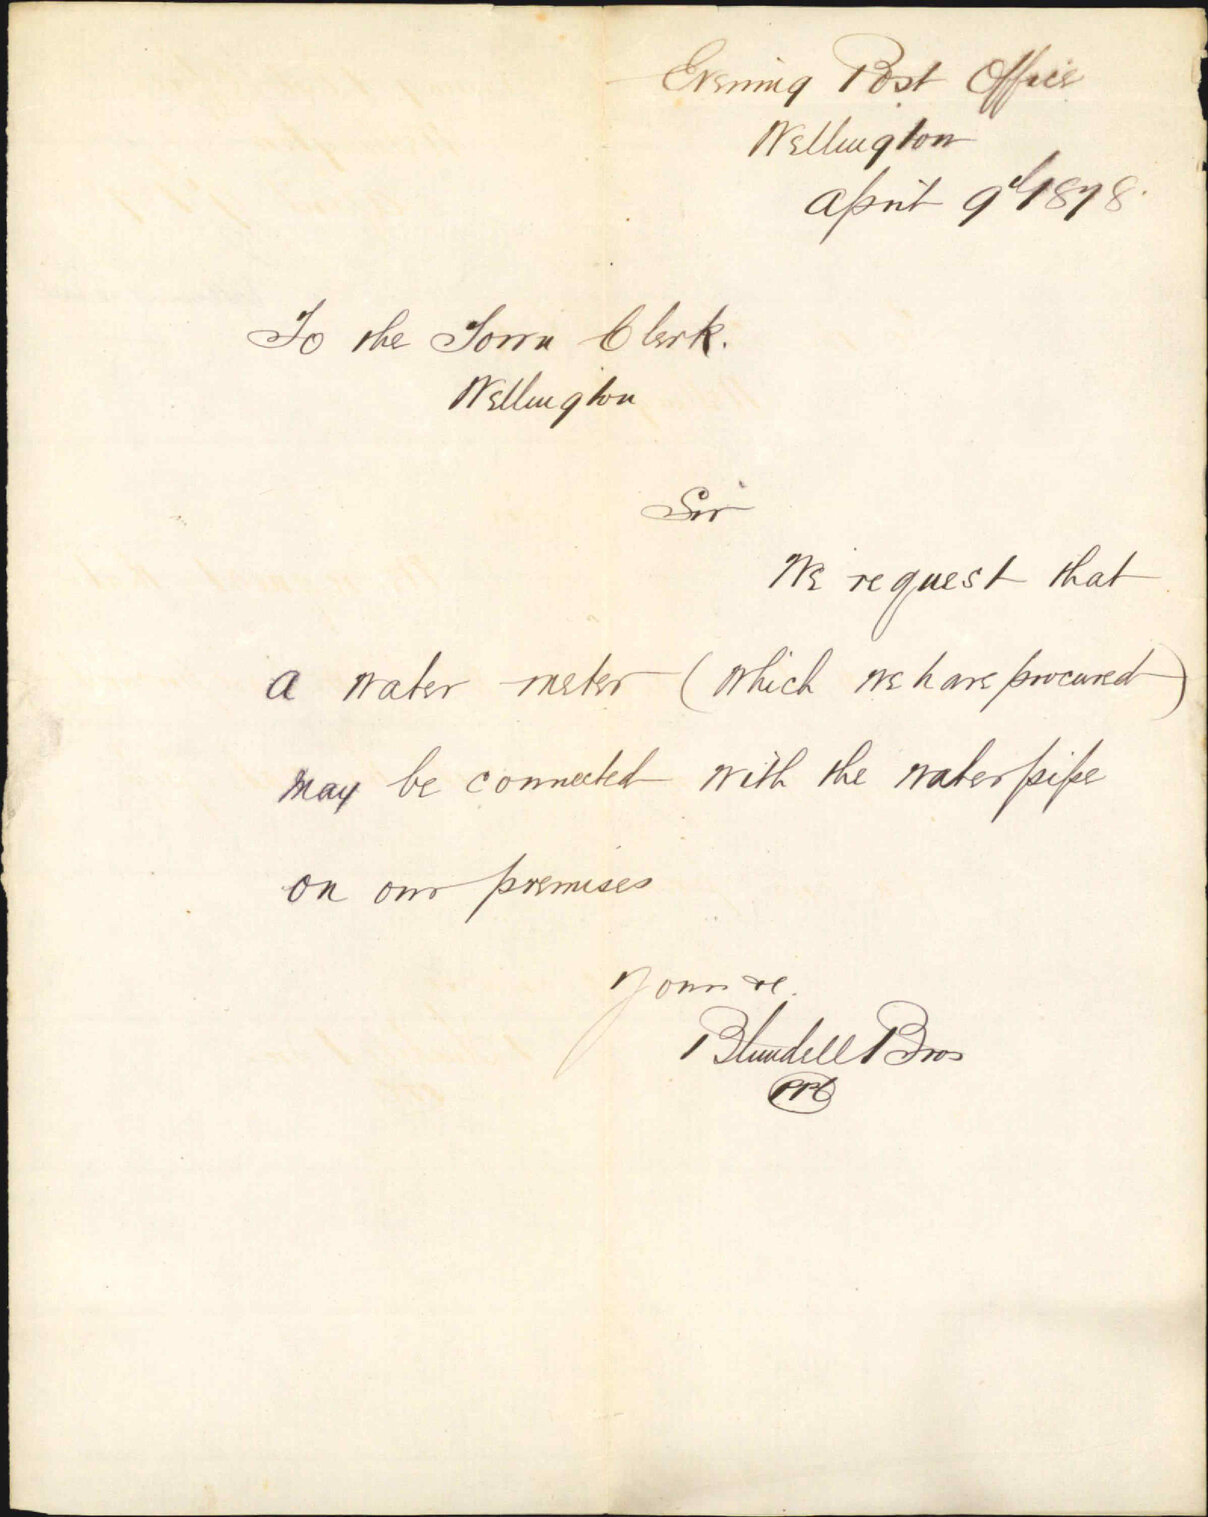 Evening Post Office
Wellington
April 9th 1878.
To the Town Clerk.
Wellington
Sir
We request that
a water meter (which we have procured)
may be connected with the water pipe
on our premises
Yours &c.
Blundell Bros